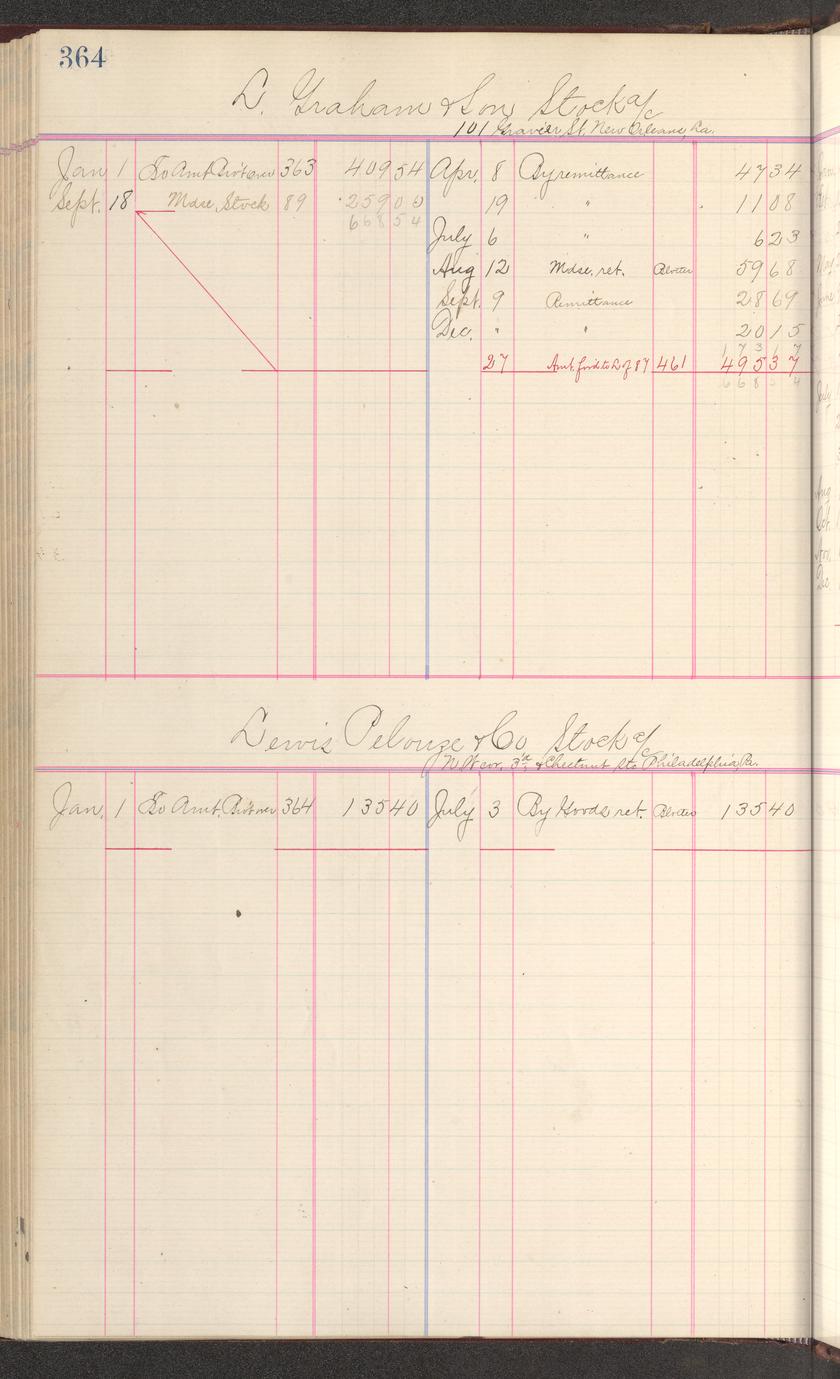 364
L. Graham & Son, Stock a/c
101 Gravier St. New Orleans, La.
Jan 1 To Amt. Bro't over 363 409 54 Apr. 8 By remittance 47 34
Sept. 18 Mdse. Stock 89 259 00 19 " 11 08
668 54
July 6 " 6 23
Aug 12 Mdse. ret. Blotter 59 68
Sept. 9 Remittance 28 69
Dec. " " 20 15
173 17
27 Amt. ford to L of 87 461 495 37
668 54
Lewis Pelouze & Co Stock a/c
N.W. cor. 3rd & Chestnut Sts Philadelphia, Pa.
Jan. 1 To Amt. Bro't over 364 135 40 July 3 By Goods ret. Blotter 135 40